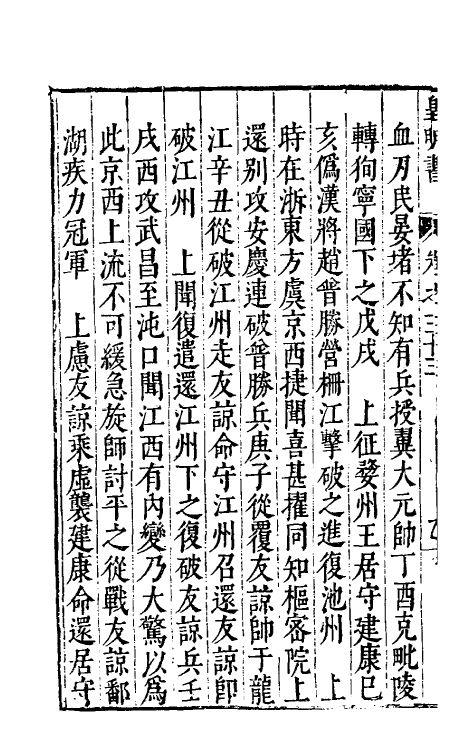 皇明書 卷之三十三
血刃民晏堵不知有兵授翼大元帥丁酉克毗陵
轉狥寧國下之戊戌 上征婺州王居守建康己
亥僞漢將趙普勝營柵江擊破之進復池州 上
時在浙東方虞京西捷聞喜甚擢同知樞密院上
還别攻安慶連破普勝兵庚子從覆友諒帥于龍
江辛丑從破江州走友諒命守江州召還友諒即
破江州 上聞復遣還江州下之復破友諒兵壬
戌西攻武昌至沌口聞江西有內變乃大驚以爲
此京西上流不可緩急旋師討平之從戰友諒鄱
湖疾力冠軍 上慮友諒乘虛襲建康命還居守